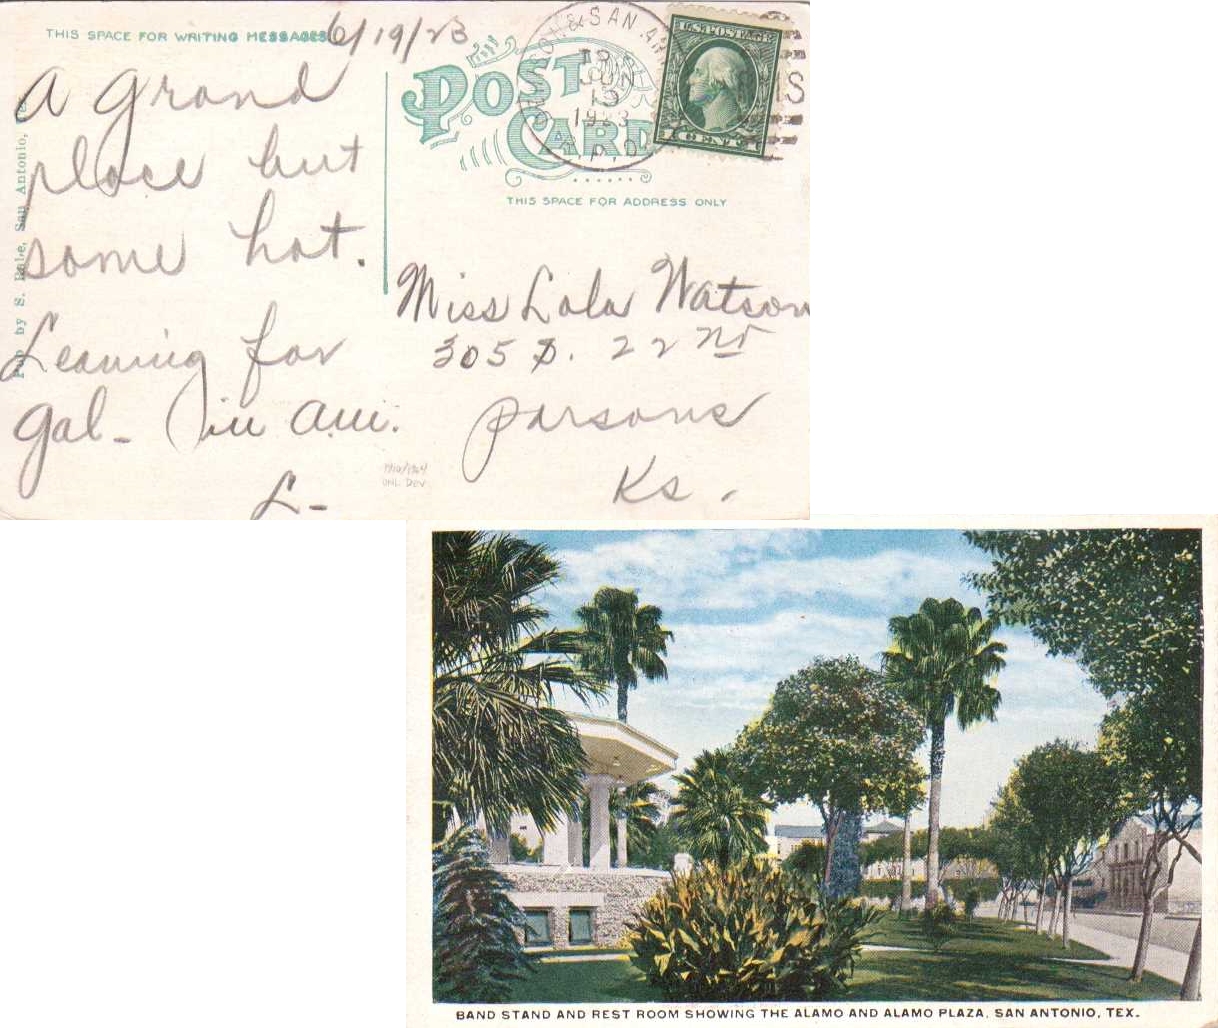 THIS SPACE FOR WRITING MESSAGES
6/19/23
A grand
place but
some hot.
Leaving for
Gal- in am.
L-
Pub by S. San Antonio,
POST
CARD
SAN
JUN
19
1923
R.P.O.
U.S. POSTAGE
1 CENT 1
THIS SPACE FOR ADDRESS ONLY
Miss Lola Watson
305 S. 22nd
Parsons
Ks.
UNL DEV
BAND STAND AND REST ROOM SHOWING THE ALAMO AND ALAMO PLAZA, SAN ANTONIO, TEX.